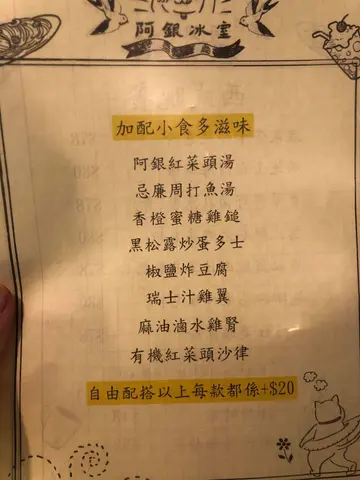 阿銀冰室
加配小食多滋味
阿銀紅菜頭湯
忌廉周打魚湯
香橙蜜糖雞鎚
黑松露炒蛋多士
椒鹽炸豆腐
瑞士汁雞翼
麻油滷水雞腎
有機紅菜頭沙律
自由配搭以上每款都係+$20